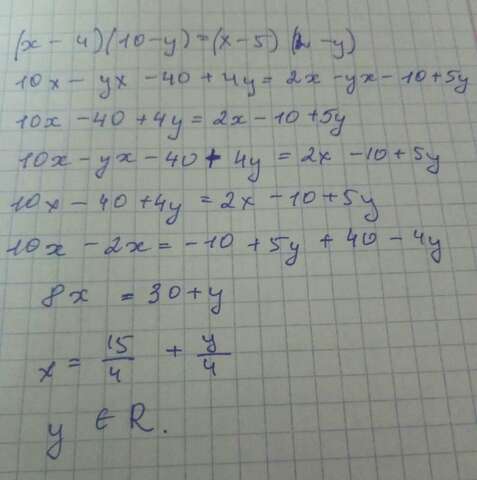 (x - 4)(10-y)=(x-5)(2-y)
10x - yx - 40 + 4y = 2x - yx - 10 + 5y
10x - 40 + 4y = 2x - 10 + 5y
10x - yx - 40 + 4y = 2x - 10 + 5y
10x - 40 + 4y = 2x - 10 + 5y
10x - 2x = -10 + 5y + 40 - 4y
8x = 30 + y
x = 15/4 + y/4
y ∈ R.